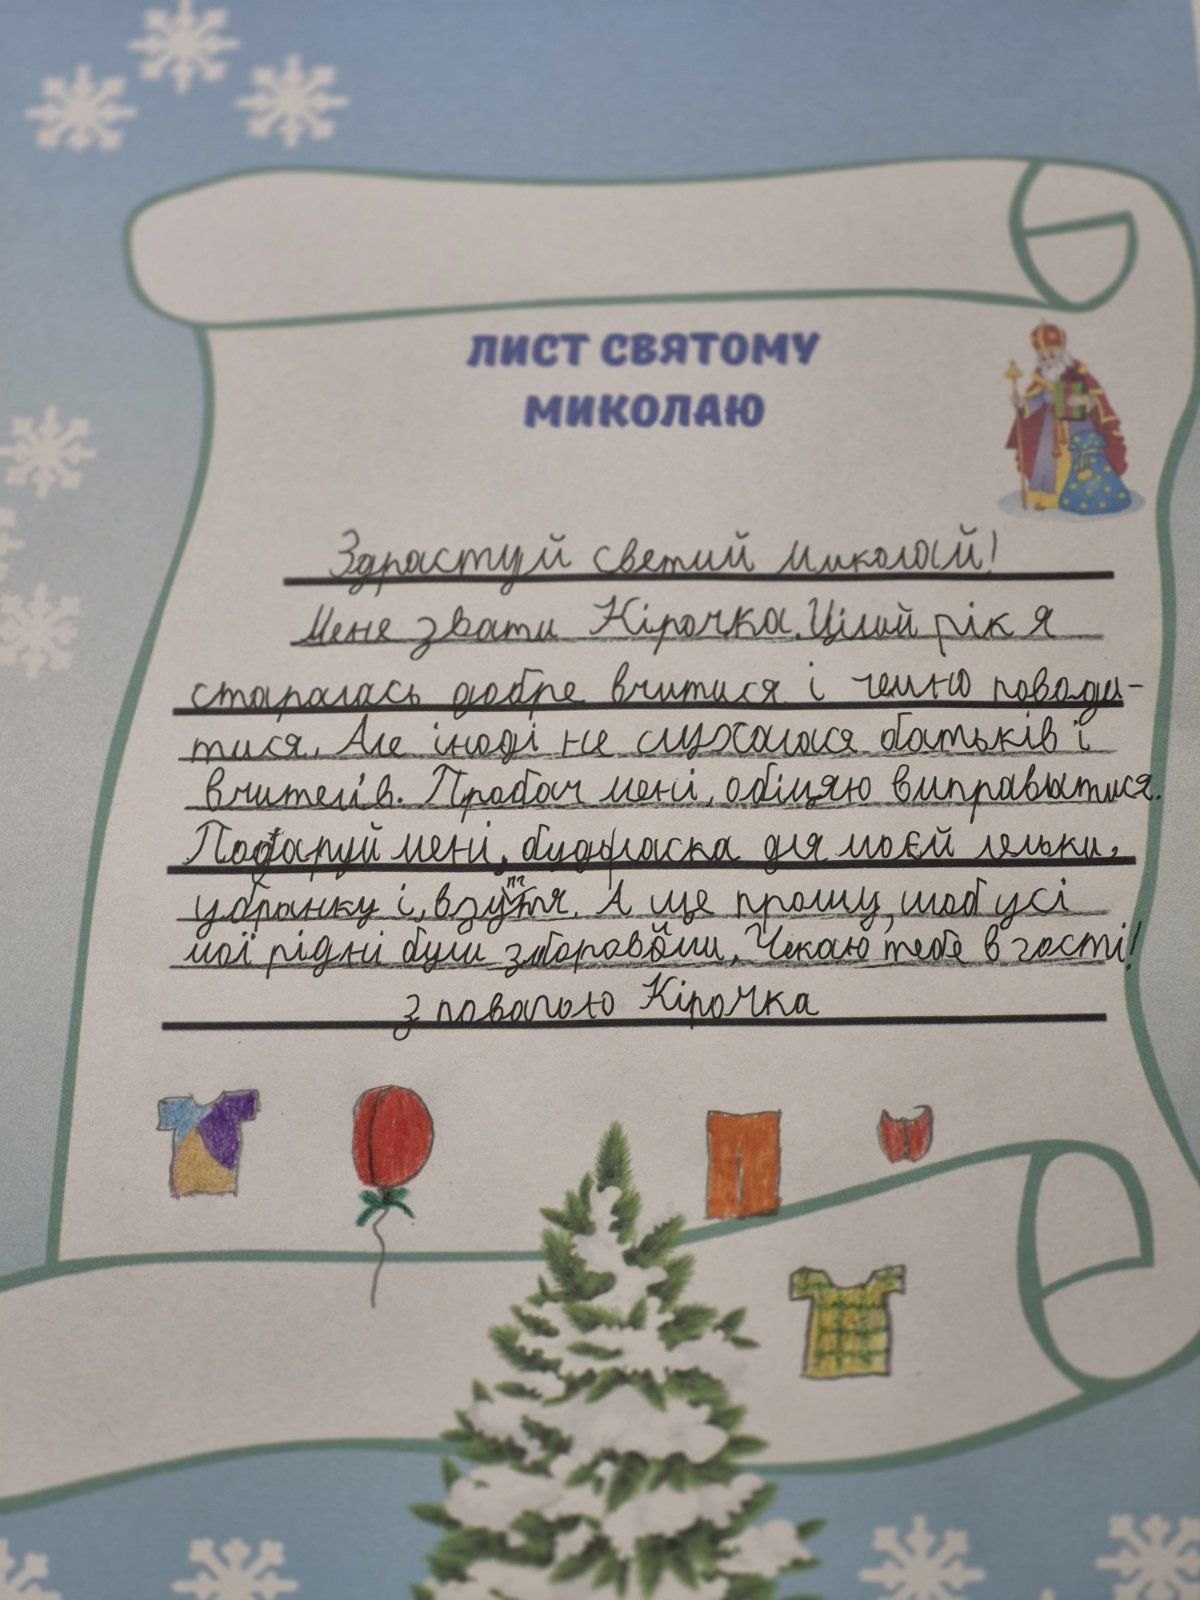 ЛИСТ СВЯТОМУ
МИКОЛАЮ
Здрастуй светий Миколай!
Мене звати Кірочка. Цілий рік я
старалась добре вчитися і чемно поводи-
тися. Але іноді не слухалася батьків і
вчителів. Пробач мені, обіцяю виправитися.
Подаруй мені, будьласка для моєй ляльки,
убранку і, взуття. А ще прошу, щоб усі
мої рідні були здоровими. Чекаю тебе в гості!
З повагою Кірочка